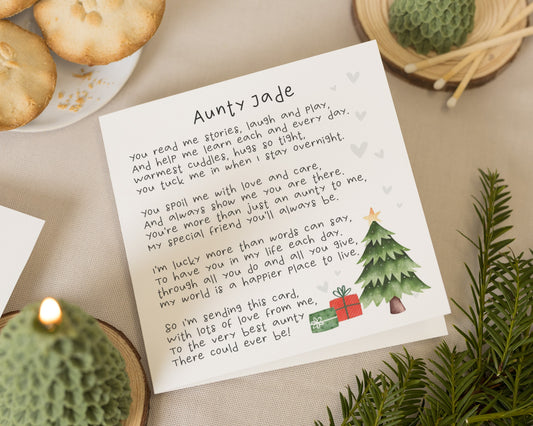 Aunty Jade
You read me stories, laugh and play,
And help me learn each and every day.
Warmest cuddles, hugs so tight,
You tuck me in when I stay overnight.
You spoil me with love and care,
And always show me you are there.
You're more than just an aunty to me,
My special friend you'll always be.
I'm lucky more than words can say,
To have you in my life each day.
Through all you do and all you give,
My world is a happier place to live.
So i'm sending this card,
With lots of love from me,
To the very best aunty
There could ever be!